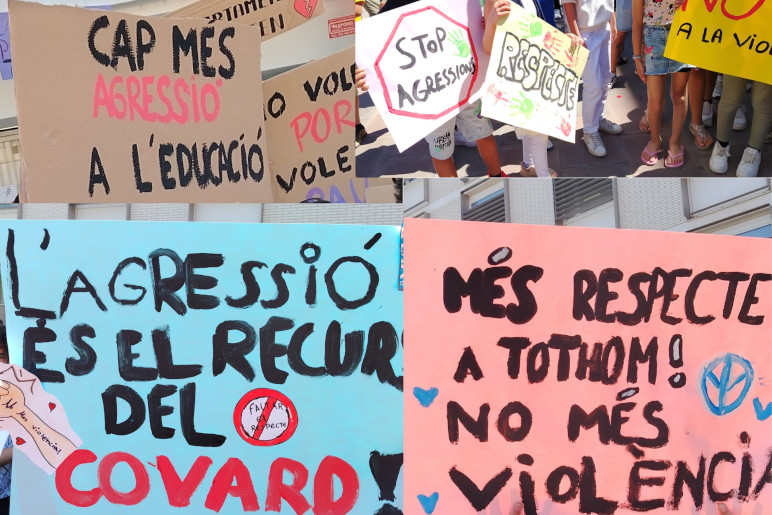 CAP MÉS
AGRESSIÓ
A L'EDUCACIÓ
VOLE
POR
VOLE
STOP
AGRESSIONS
RESPECTE
NO
A LA VIOL
L'AGRESSIÓ
ÉS EL RECURS
DEL
COVARD!
FALTAR
EL
RESPECTE
No Més
violència!
MÉS RESPECTE
A TOTHOM!
NO MÉS
VIOLÈNCIA